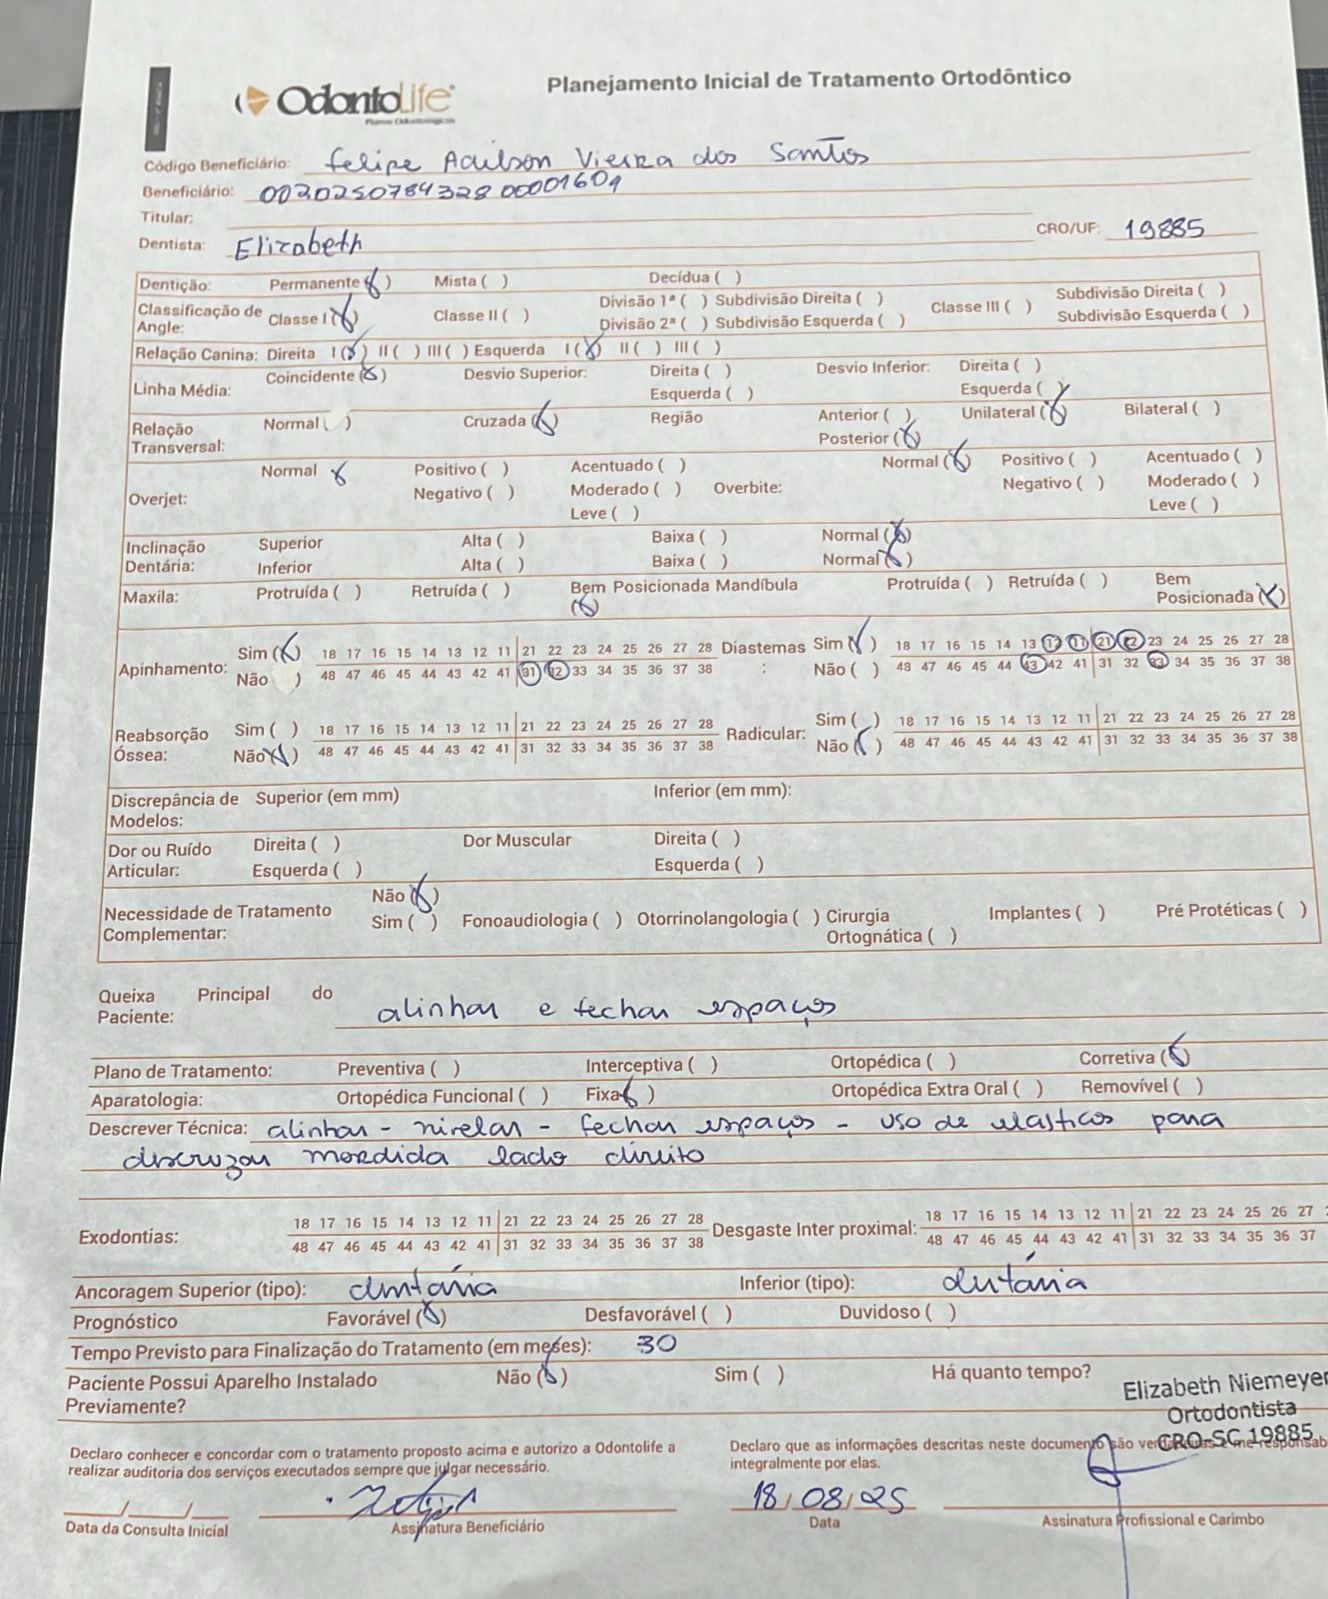 OdontoLife
Planos Odontológicos
Planejamento Inicial de Tratamento Ortodôntico
Código Beneficiário: Felipe Adilson Vieira dos Santos
Beneficiário: 002025078432800001609
Titular:
Dentista: Elizabeth CRO/UF: 19885
Dentição: Permanente (X) Mista ( ) Decídua ( )
Classificação de Angle: Classe I (X) Classe II ( ) Divisão 1ª ( ) Subdivisão Direita ( ) Classe III ( ) Subdivisão Direita ( )
Divisão 2ª ( ) Subdivisão Esquerda ( ) Subdivisão Esquerda ( )
Relação Canina: Direita I (X) II ( ) III ( ) Esquerda I (X) II ( ) III ( )
Linha Média: Coincidente (X) Desvio Superior: Direita ( ) Desvio Inferior: Direita ( )
Esquerda ( ) Esquerda ( )
Relação Transversal: Normal ( ) Cruzada (X) Região Anterior ( ) Unilateral (X) Bilateral ( )
Posterior (X)
Overjet: Normal X Positivo ( ) Acentuado ( ) Overbite: Normal (X) Positivo ( ) Acentuado ( )
Negativo ( ) Moderado ( ) Negativo ( ) Moderado ( )
Leve ( ) Leve ( )
Inclinação Dentária: Superior Alta ( ) Baixa ( ) Normal (X)
Inferior Alta ( ) Baixa ( ) Normal (X)
Maxila: Protruída ( ) Retruída ( ) Bem Posicionada (X) Mandíbula Protruída ( ) Retruída ( ) Bem Posicionada (X)
Apinhamento: Sim (X) 18 17 16 15 14 13 12 11 21 22 23 24 25 26 27 28 Diastemas: Sim (X) 18 17 16 15 14 13 12 11 21 22 23 24 25 26 27 28
Não ( ) 48 47 46 45 44 43 42 41 31 32 33 34 35 36 37 38 Não ( ) 48 47 46 45 44 43 42 41 31 32 33 34 35 36 37 38
Reabsorção Óssea: Sim ( ) 18 17 16 15 14 13 12 11 21 22 23 24 25 26 27 28 Radicular: Sim ( ) 18 17 16 15 14 13 12 11 21 22 23 24 25 26 27 28
Não (X) 48 47 46 45 44 43 42 41 31 32 33 34 35 36 37 38 Não (X) 48 47 46 45 44 43 42 41 31 32 33 34 35 36 37 38
Discrepância de Modelos: Superior (em mm) Inferior (em mm):
Dor ou Ruído Articular: Direita ( ) Dor Muscular Direita ( )
Esquerda ( ) Esquerda ( )
Necessidade de Tratamento Complementar: Não (X)
Sim ( ) Fonoaudiologia ( ) Otorrinolangologia ( ) Cirurgia Ortognática ( ) Implantes ( ) Pré Protéticas ( )
Queixa Principal do Paciente: alinhar e fechar espaços
Plano de Tratamento: Preventiva ( ) Interceptiva ( ) Ortopédica ( ) Corretiva (X)
Aparatologia: Ortopédica Funcional ( ) Fixa (X) Ortopédica Extra Oral ( ) Removível ( )
Descrever Técnica: alinhar - nivelar - fechar espaços - uso de elasticos para
descruzar mordida lado direito
Exodontias: 18 17 16 15 14 13 12 11 21 22 23 24 25 26 27 28 Desgaste Inter proximal: 18 17 16 15 14 13 12 11 21 22 23 24 25 26 27
48 47 46 45 44 43 42 41 31 32 33 34 35 36 37 38 48 47 46 45 44 43 42 41 31 32 33 34 35 36 37
Ancoragem Superior (tipo): dentária Inferior (tipo): dentária
Prognóstico Favorável (X) Desfavorável ( ) Duvidoso ( )
Tempo Previsto para Finalização do Tratamento (em meses): 30
Paciente Possui Aparelho Instalado Previamente? Não (X) Sim ( ) Há quanto tempo?
Elizabeth Niemeyer
Ortodontista
CRO-SC 19885
Declaro conhecer e concordar com o tratamento proposto acima e autorizo a Odontolife a
realizar auditoria dos serviços executados sempre que julgar necessário.
Declaro que as informações descritas neste documento são
integralmente por elas.
__/__/__ 18/08/25
Data da Consulta Inicial Assinatura Beneficiário Data Assinatura Profissional e Carimbo